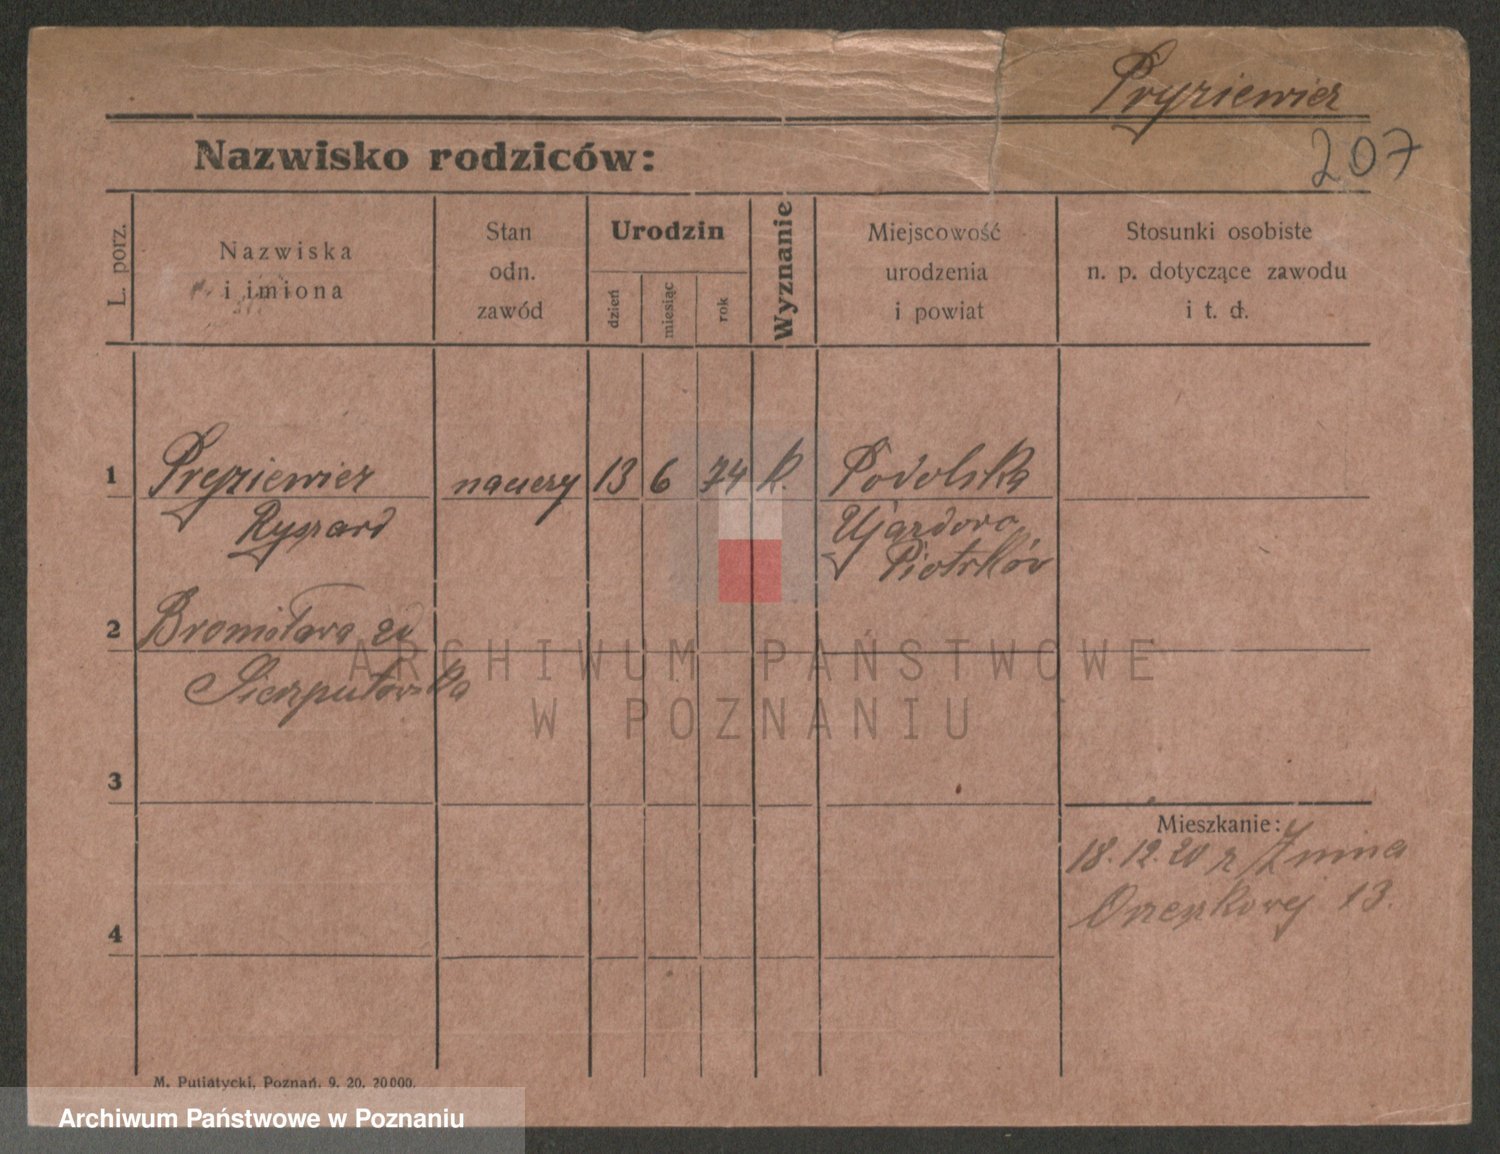 Pryziewicz
207
Nazwisko rodziców:
L. porz.
Nazwiska
i imiona
Stan
odn.
zawód
Urodzin
dzień
miesiąc
rok
Wyznanie
Miejscowość
urodzenia
i powiat
Stosunki osobiste
n. p. dotyczące zawodu
i t. d.
1 Pryziewicz naucz 13 6 74 k. Podolska
Ryszard Ujazdova
Piotrków
2 Bronisława
ARCHIWUM PAŃSTWOWE
W POZNANIU
3
Mieszkanie:
18.12.20 z Żnina
13.
4
M. Putiatycki, Poznań. 9. 20. 20000.
Archiwum Państwowe w Poznaniu